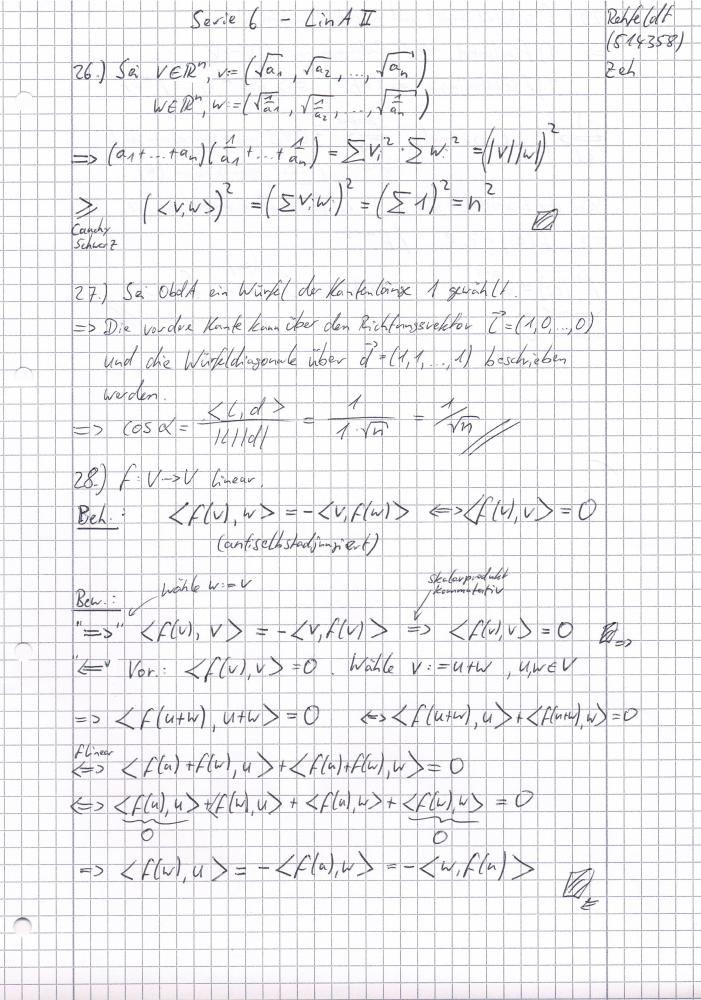 Serie 6 - LinA II
Rehfeldt
(514358)
Zeh
26.) Sei v∈ℝⁿ, v:=(√a₁, √a₂, ..., √aₙ)
w∈ℝⁿ, w:=(√(1/a₁), √(1/a₂), ..., √(1/aₙ))
=> (a₁+...+aₙ)(1/a₁+...+1/aₙ) = ∑vᵢ² · ∑wᵢ² = (|v||w|)²
≥ (<v,w>)² = (∑vᵢwᵢ)² = (∑1)² = n²
Cauchy
Schwarz
27.) Sei ObdA ein Würfel der Kantenlänge 1 gewählt.
=> Die vordere Kante kann über den Richtungsvektor l⃗=(1,0,...,0)
und die Würfeldiagonale über d⃗=(1,1,...,1) beschrieben
werden.
=> cos α = <l,d>/|l||d| = 1/(1·√n) = 1/√n
28.) f: V->V linear.
Beh.: <f(v),w> = -<v,f(w)> <=> <f(v),v> = 0
(antiselbstadjungiert)
Bew.: wähle w:=v
Skalarprodukt
kommutativ
"=>" <f(v),v> = -<v,f(v)> => <f(v),v> = 0 =>
"<=" Vor.: <f(v),v> = 0. Wähle v:=u+w, u,w∈V
=> <f(u+w),u+w> = 0 <=> <f(u+w),u>+<f(u+w),w> = 0
f linear
<=> <f(u)+f(w),u>+<f(u)+f(w),w> = 0
<=> <f(u),u>+<f(w),u>+<f(u),w>+<f(w),w> = 0
0 0
=> <f(w),u> = -<f(u),w> = -<w,f(u)>
<=